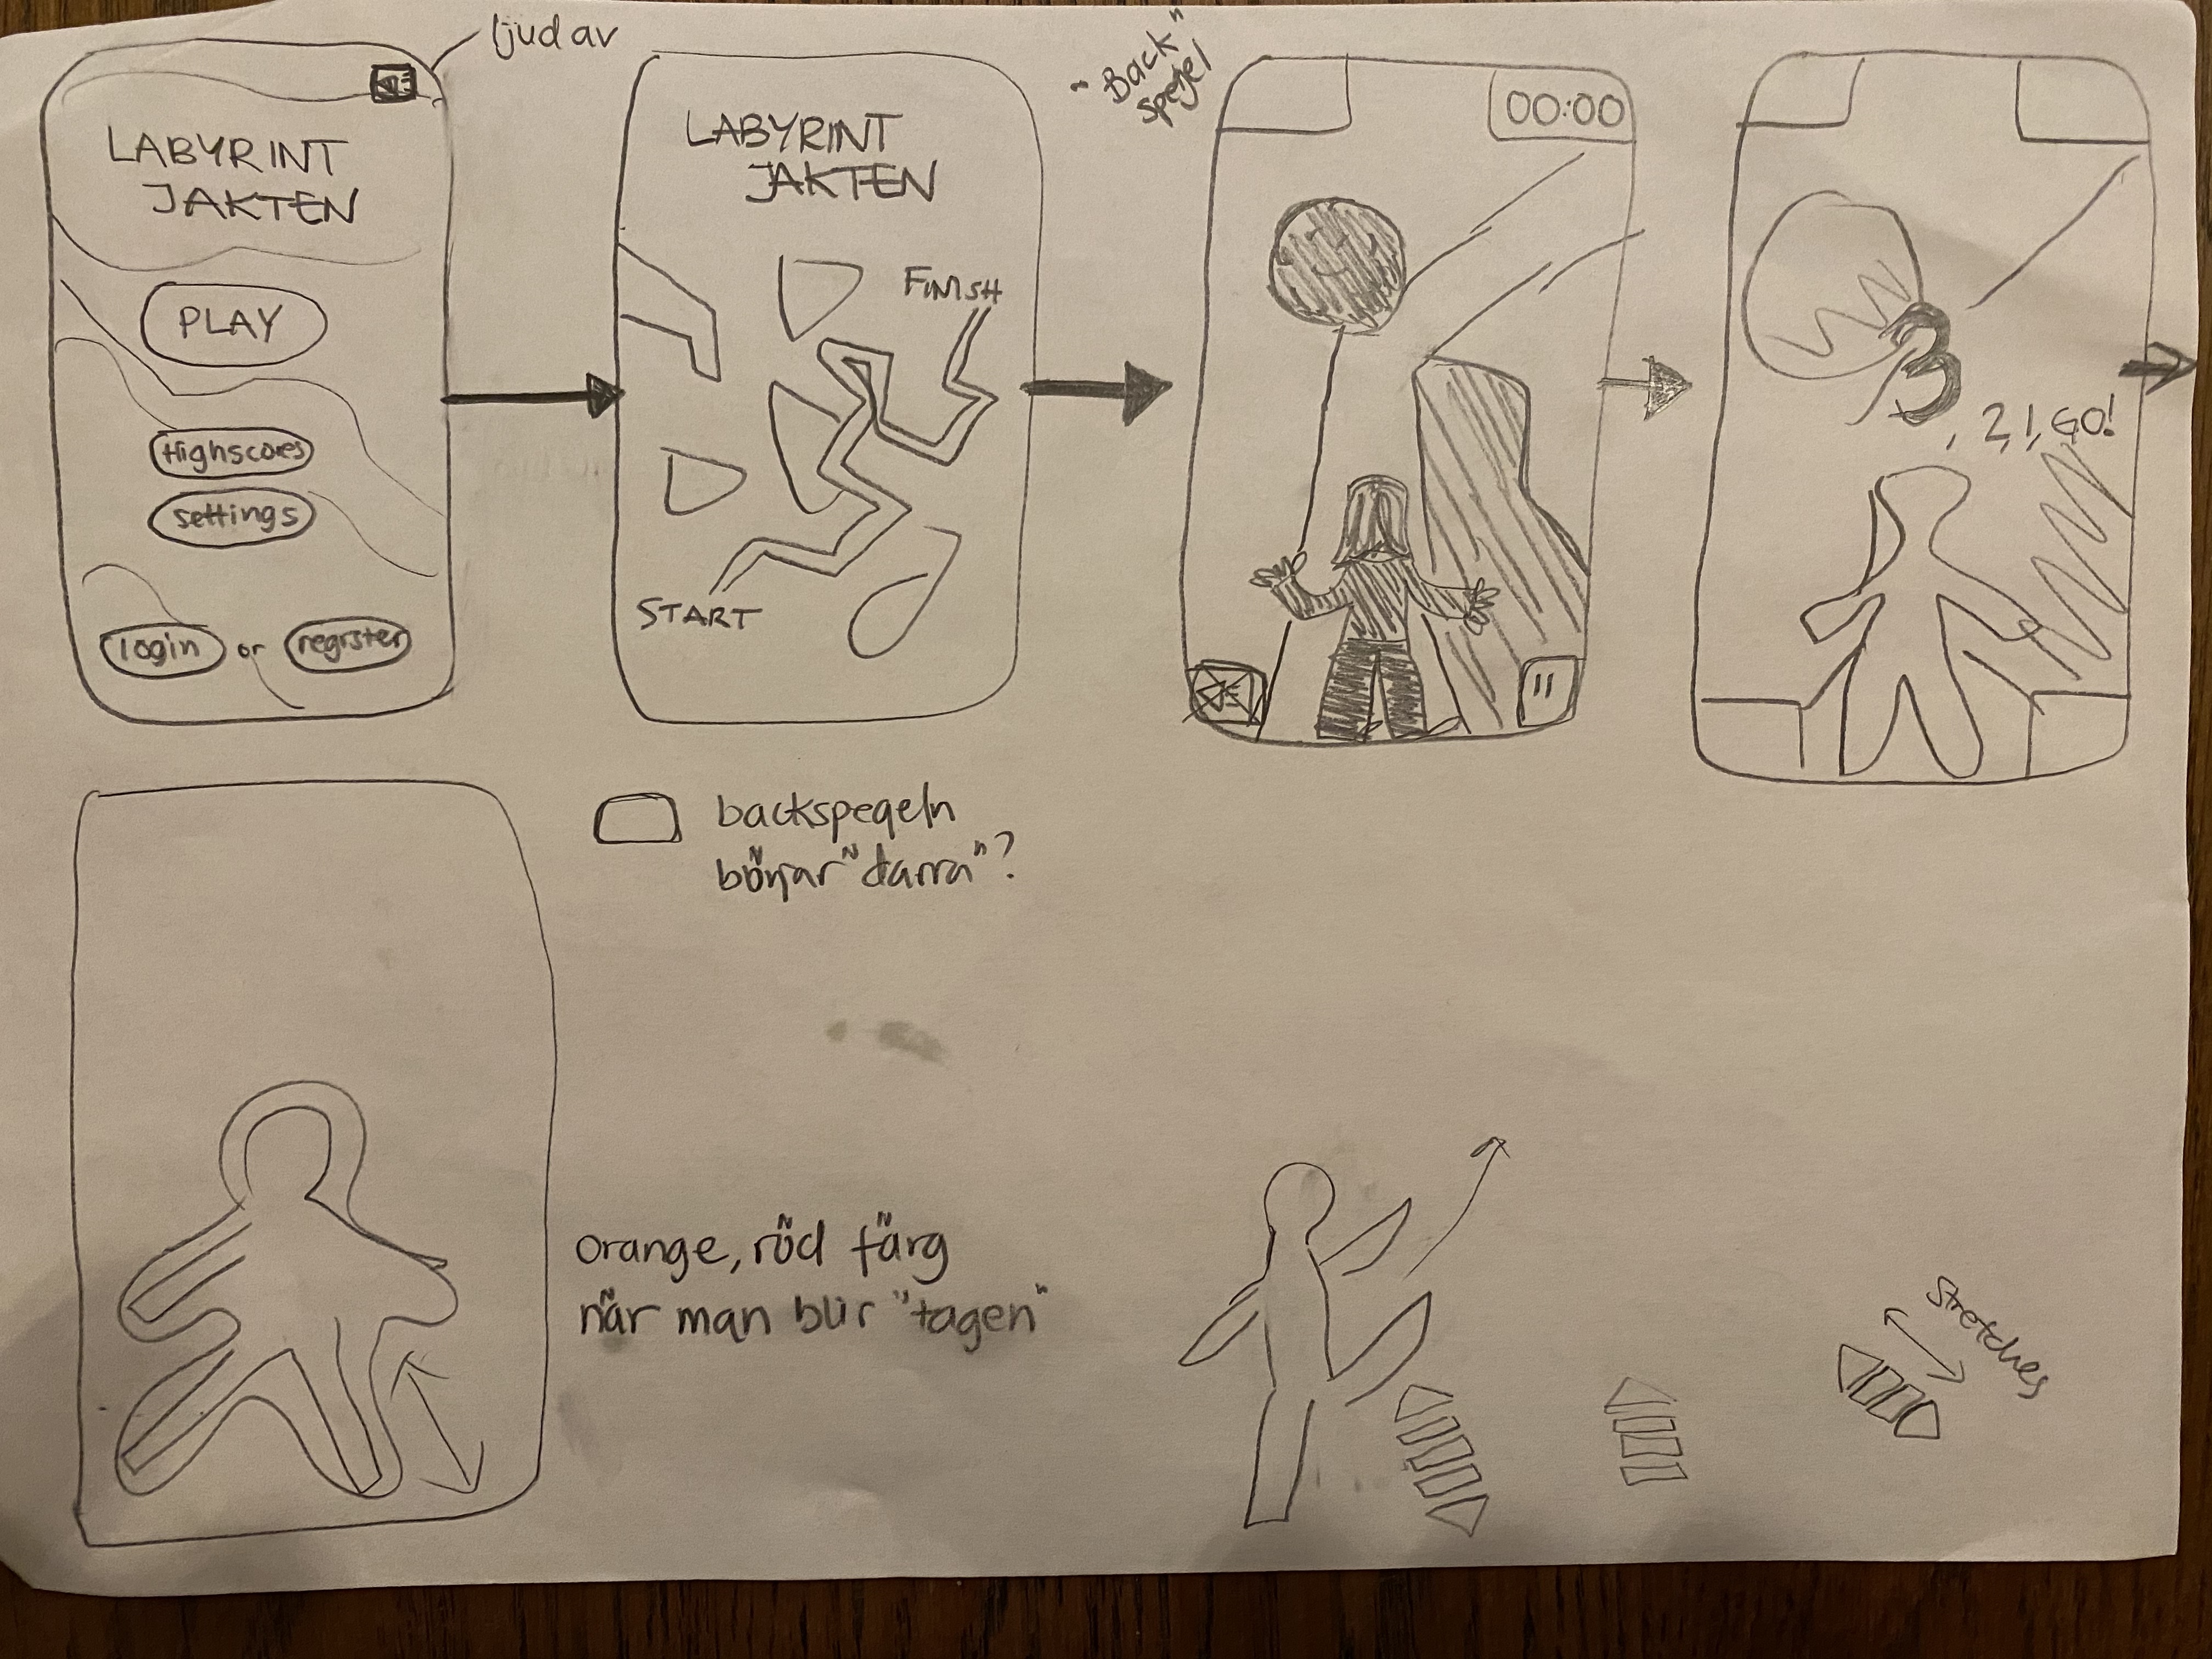 ljud av
LABYRINT
JAKTEN
PLAY
Highscores
settings
login or register
LABYRINT
JAKTEN
FINISH
START
"Back"
spegel
00:00
3
, 2, 1, GO!
backspegeln
börjar "darra"?
orange, röd färg
när man blir "tagen"
stretches